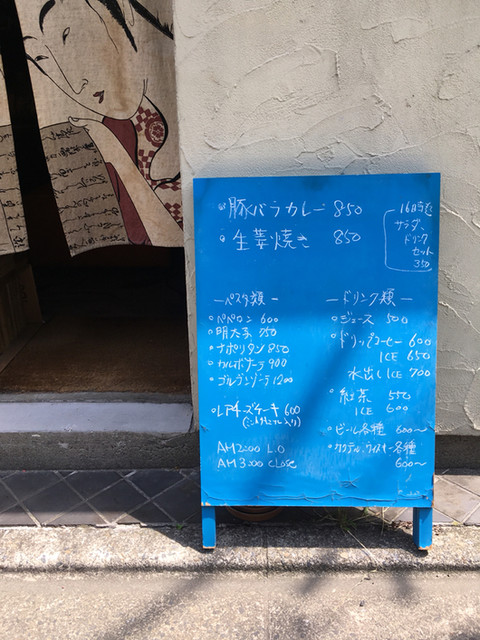 豚バラカレー 850
生姜焼き 850
16時まで
サラダ、
ドリンク
セット
350
ーパスタ類ー
ペペロン 600
明太子 750
ナポリタン 850
カルボナーラ 900
ゴルゴンゾーラ 1200
レアチーズケーキ 600
AM2:00 L.O
AM3:00 CLOSE
ードリンク類ー
ジュース 500
ドリップコーヒー 600
ICE 650
水出しICE 700
紅茶 550
ICE 600
ビール各種 600〜
カクテル、ウイスキー各種
600〜